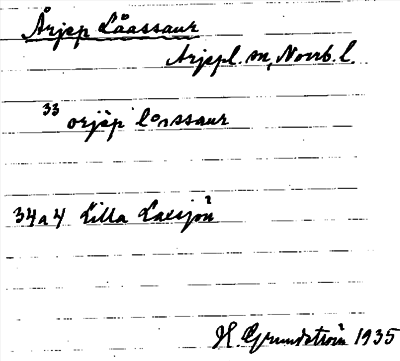 Årjep Låassaur
Arjepl. sn, Norrb. l.
33 orjēp lᴏssaur
34a4 Lilla Laisjön
H. Grundström 1935